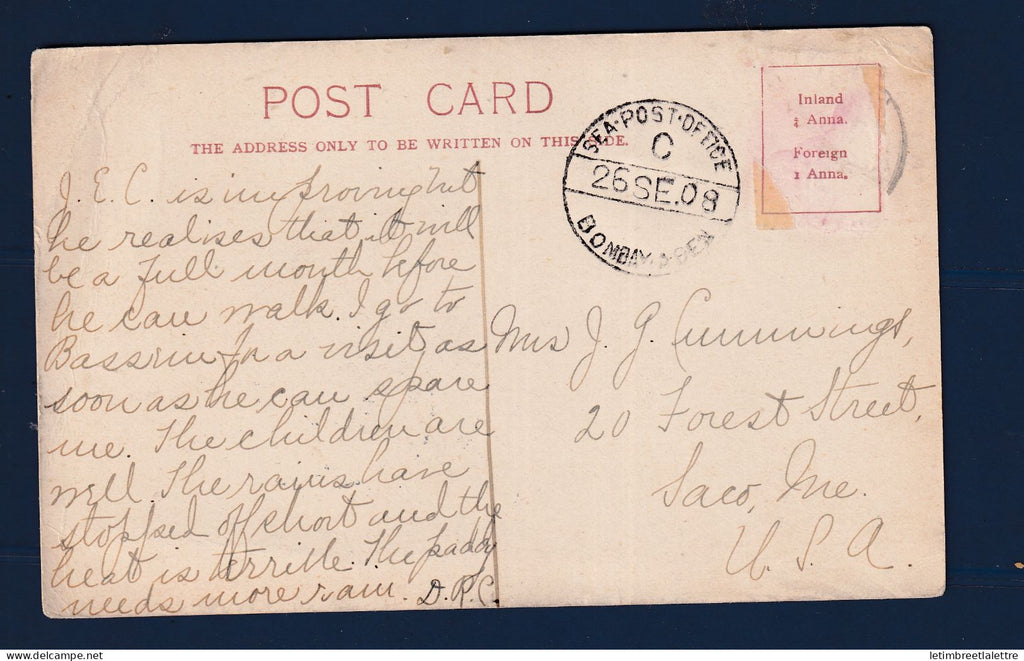 POST CARD
THE ADDRESS ONLY TO BE WRITTEN ON THIS SIDE.
SEA·POST·OFFICE
C
26 SE.08
BOMBAY·ADEN
Inland
½ Anna.
Foreign
1 Anna.
J. E. C. is improving but
he realises that it will
be a full month before
he can walk. I go to
Bassein for a visit as
soon as he can spare
me. The children are
well The rains have
stopped off short and the
heat is terrible. The paddy
needs more rain. D.R.C.
Mrs J. G. Cummings,
20 Forest Street,
Saco, Me.
U.S.A.
letimbreetlalettre